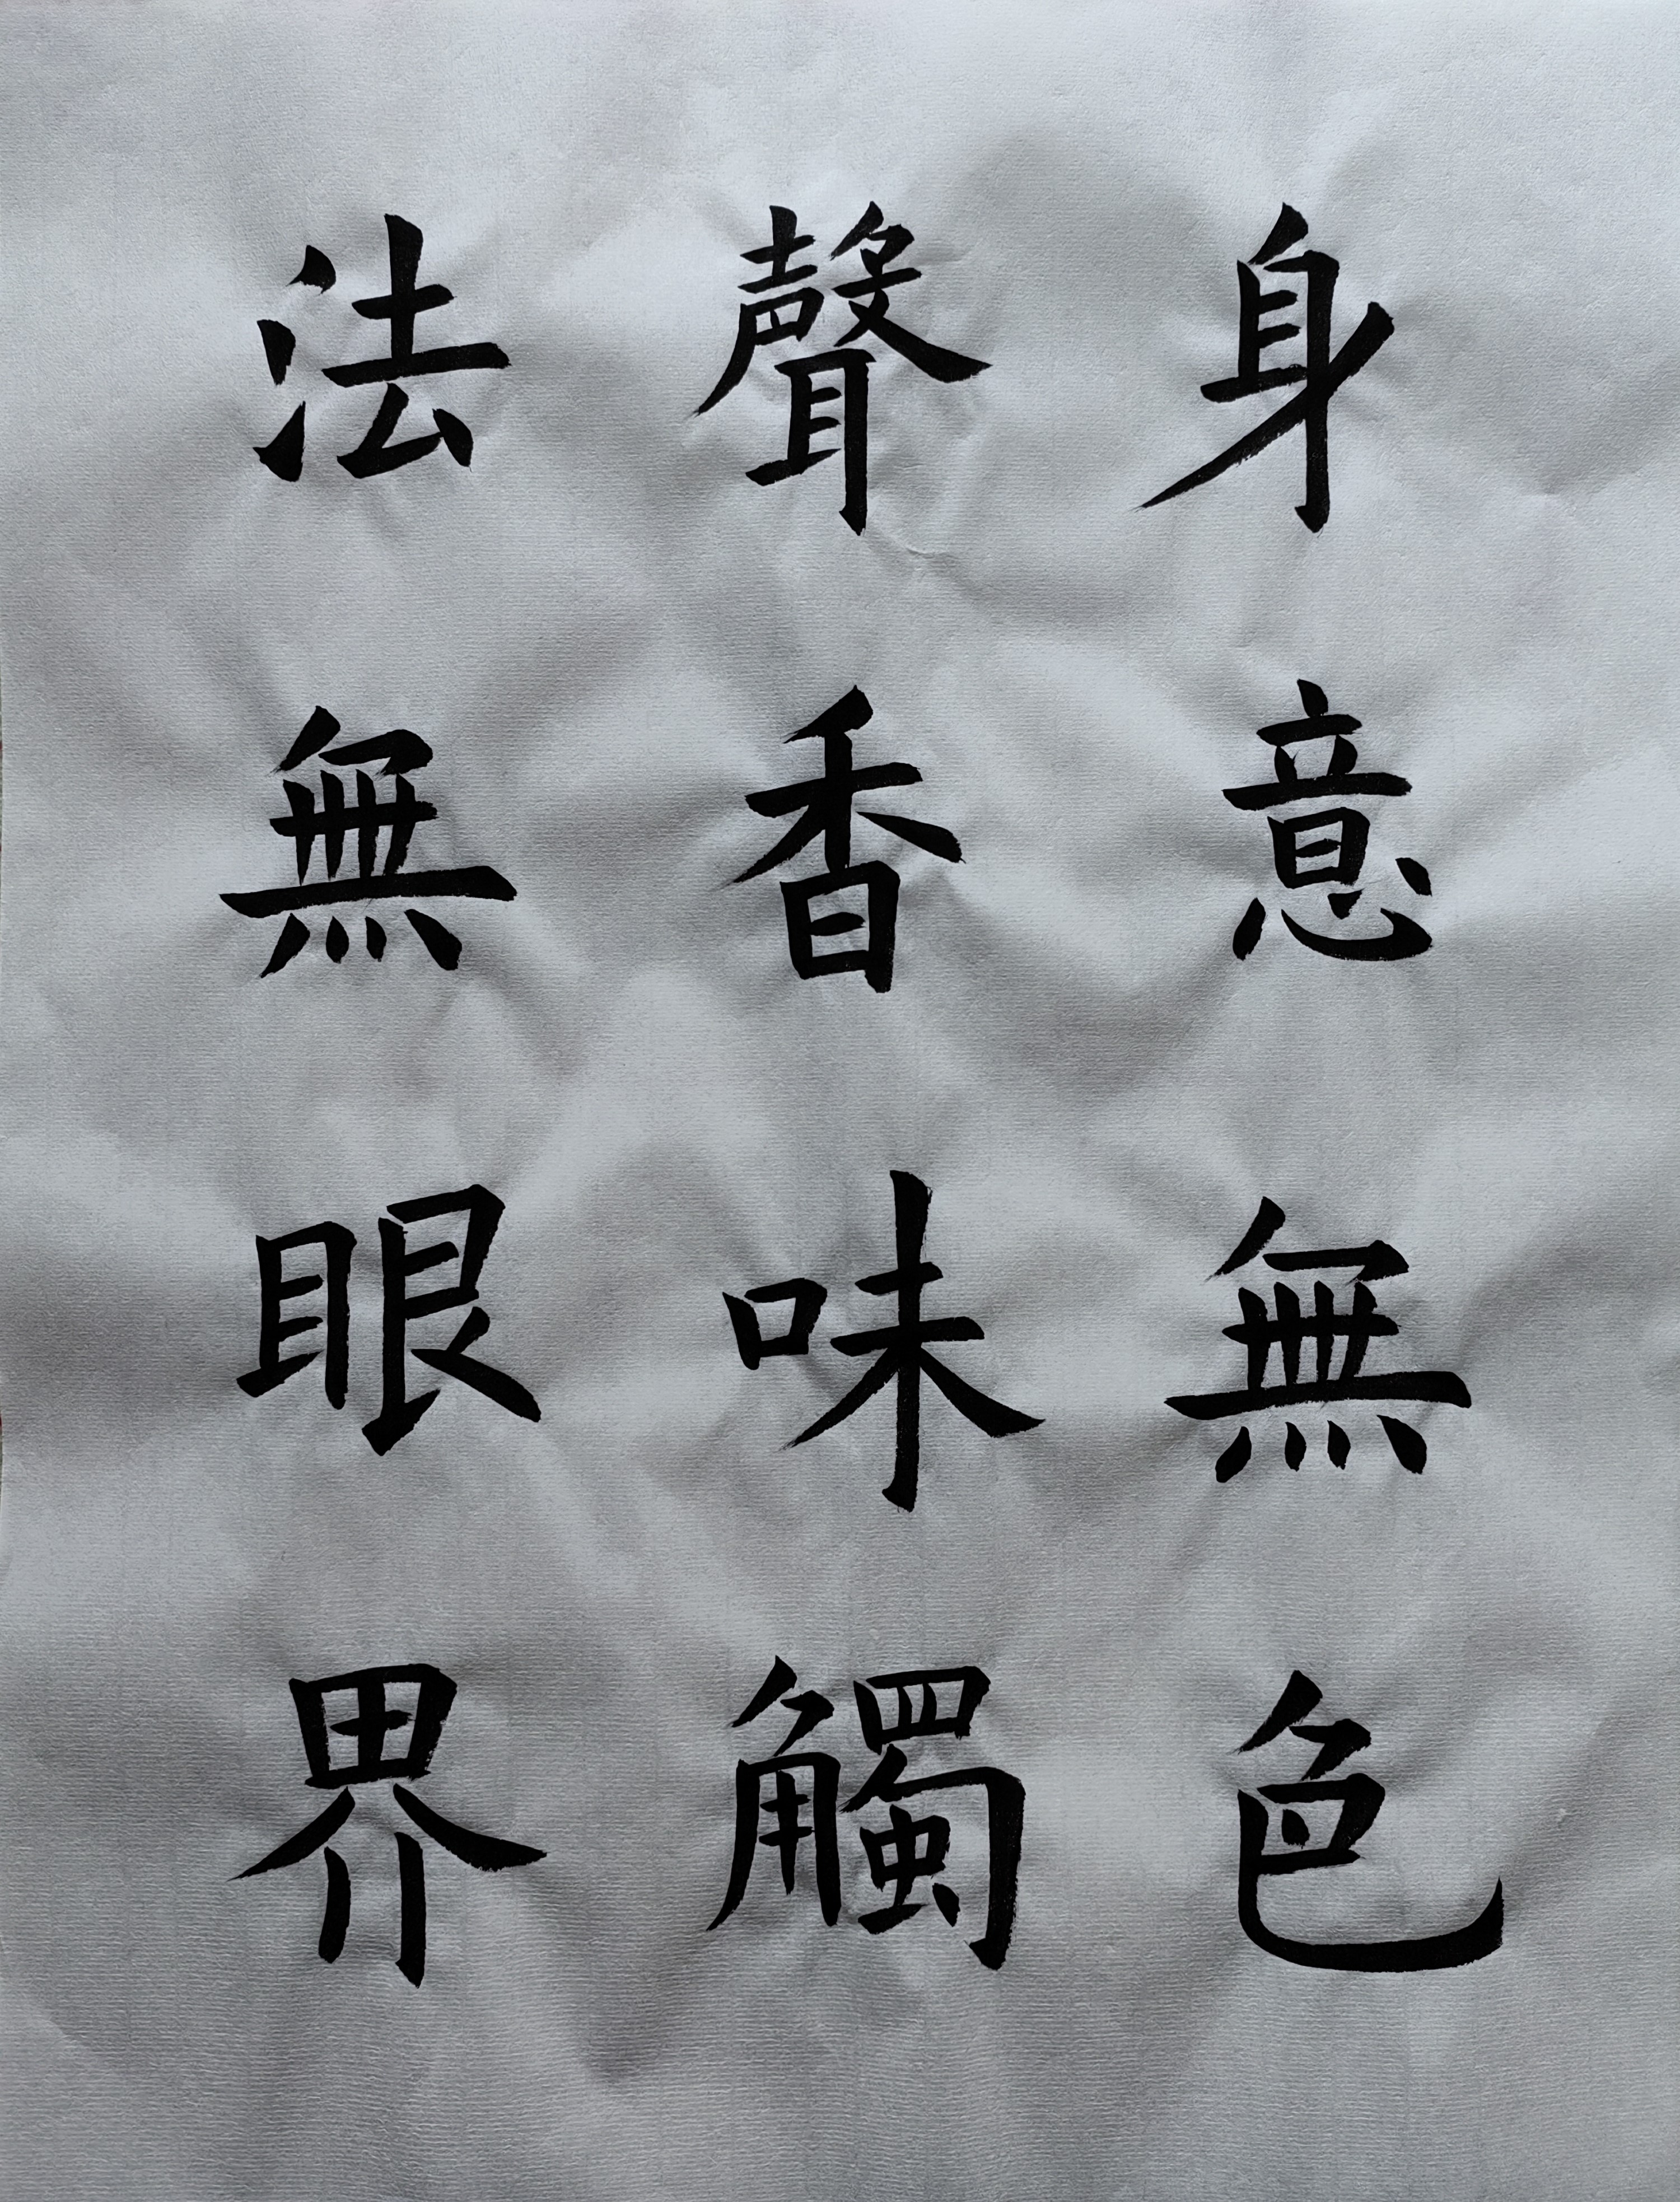 身意無色
聲香味觸
法無眼界